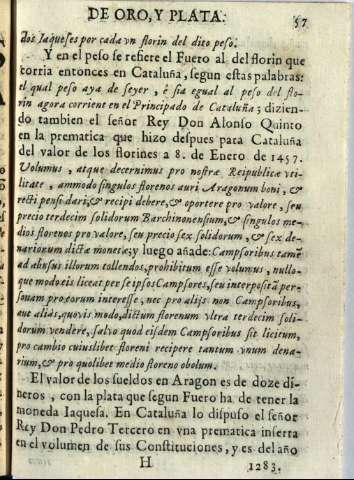 DE ORO, Y PLATA. 57
dos Iaqueses por cada vn florin del dito peso.
Y en el peso se refiere el Fuero al del florin que
corria entonces en Cataluña, segun estas palabras:
el qual peso aya de seyer, è sia egual al peso del flo-
rin agora corrient en el Principado de Cataluña; dizien-
do tambien el señor Rey Don Alonso Quinto
en la prematica que hizo despues para Cataluña
del valor de los florines a 8. de Enero de 1457.
Volumus, atque decernimus pro nostræ Reipublicæ vti-
litate, ammodo singulos florenos auri Aragonum boni, &
recti pensi dari, & recipi debere, & oportere pro valore, seu
precio terdecim solidorum Barchinonensium, & singulos me-
dios florenos pro valore, seu precio sex solidorum, & sex de-
nariorum dictæ monetæ; y luego añade: Campsoribus tamẽ
ad abusus illorum tollendos, prohibitum esse volumus, nullo-
que modo eis liceat per se ipsos Campsores, seu interpositã per-
sonam pro eorum interesse, nec pro alijs non Campsoribus,
aut aliàs, quovis modo, dictum florenum vltra terdecim soli-
dorum vendere, salvo quod eisdem Campsoribus sit licitum,
pro cambio cuiuslibet floreni recipere tantum vnum dena-
rium, & pro quolibet medio floreno obolum.
El valor de los sueldos en Aragon es de doze di-
neros, con la plata que segun Fuero ha de tener la
moneda Iaquesa. En Cataluña lo dispuso el señor
Rey Don Pedro Tercero en vna prematica inserta
en el volumen de sus Constituciones, y es del año
H 1283.